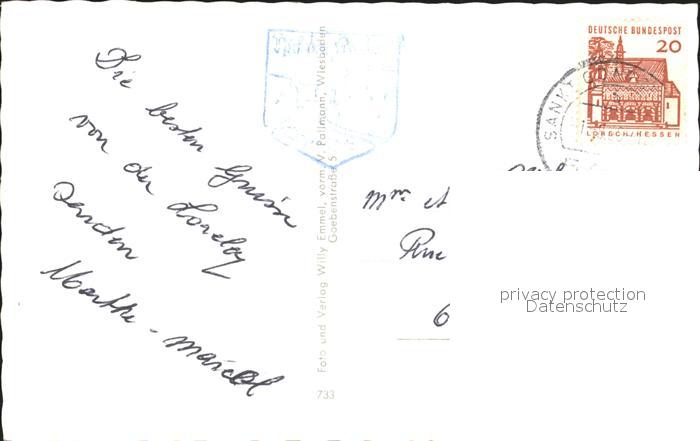 Die besten Grüsse
von der Loreley
senden
Marthe - Marcel
Foto und Verlag Willy Emmel, vorm. W. Pallmann, Wiesbaden
Goebenstraße 5
733
DEUTSCHE BUNDESPOST
20
LORSCH/HESSEN
SANKT GOAR
Mme et
Rue
6
privacy protection
Datenschutz